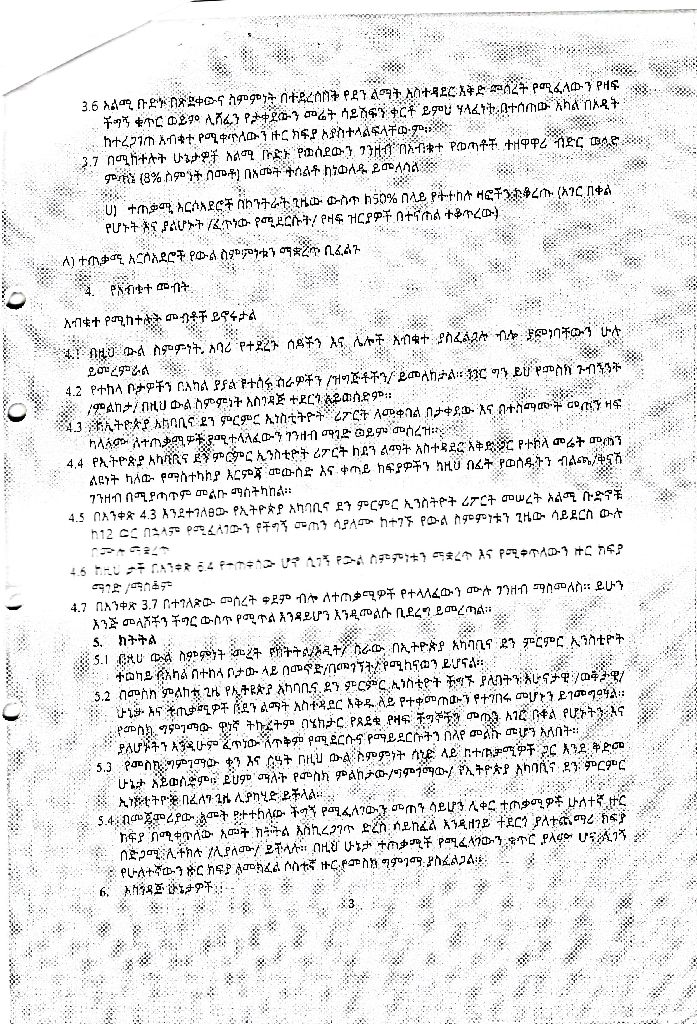 3.6 አልሚ ቡድኑ በጸደቀውና ስምምነት በተደረሰበት የደን ልማት አስተዳደር እቅድ መሰረት የሚፈለውን የዛፍ
ችግኝ ቁጥር ወይም ሊሸፈን የታቀደውን መሬት ሳይሸፍን ቀርቶ ይምህ ሃላፊነት በተሰጠው አካል በኦዲት
ከተረጋገጠ አብቁተ የሚቀጥለውን ዙር ክፍያ አያስተላልፍላቸውም።
3.7 በሚከተሉት ሁኔታዎች አልሚ ቡድኑ የወሰደውን ገንዘብ በአብቁተ የወጣቶች ተዘዋዋሪ ብድር ወለድ
ምጣኔ (8% ስምነት በመቶ) በአመት ተሰልቶ ከነወለዱ ይመለሳል
ሀ) ተጠቃሚ አርሶአደሮች በኮንትራት ጊዜው ውስጥ ከ50% በላይ የተተከሉ ዛፎችን ከቆረጡ (አገር በቀል
የሆኑት እና ያልሆኑት /ፈጥነው የሚደርሱት/ የዛፍ ዝርያዎች በተናጠል ተቆጥረው)
ለ) ተጠቃሚ አርሶአደሮች የውል ስምምነቱን ማቋረጥ ቢፈልጉ
4. የአብቁተ መብት
አብቁተ የሚከተሉት መብቶች ይኖሩታል
4.1 በዚህ ውል ስምምነት አባሪ የተደረጉ ሰዶችን እና ሌሎች አብቁተ ያስፈልጋሉ ብሎ ያመነባቸውን ሁሉ
ይመረምራል
4.2 የተከላ ቦታዎችን በአካል ያያል የተሰሩ ስራዎችን /ዝግጅቶችን/ ይመለከታል። ነገር ግን ይህ የመስክ ጉብኝት
/ምልከታ/ በዚህ ውል ስምምነት አስገዳጅ ተደርጎ አይወሰድም።
4.3 የኢትዮጵያ አካባቢና ደን ምርምር ኢንስቲትዮት ሪፖርት ለመቀበል በታቀደው እና በተስማሙት መጠን ዛፍ
ካላለሙ ለተጠቃሚዎች የሚተላለፈውን ገንዘብ ማገድ ወይም መሰረዝ።
4.4 የኢትዮጵያ አካባቢና ደን ምርምር ኢንስቲዮት ሪፖርት ከደን ልማት አስተዳደር እቅድ ጋር የተከላ መሬት መጠን
ልዩነት ካለው የማስተካከያ እርምጃ መውሰድ እና ቀጣይ ክፍያዎችን ከዚህ በፊት የወሰዱትን ብልጫ/ቅናሽ
ገንዘብ በሚያጣጥም መልቡ ማስትካከል።
4.5 በአንቀጽ 4.3 እንደተገለፀው የኢትዮጵያ አካባቢና ደን ምርምር ኢንስትዮት ሪፖርት መሠረት አልሚ ቡድኖቹ
ከ12 ወር በኋላም የሚፈለገውን የችግኝ መጠን ሳያለሙ ከተገኙ የውል ስምምነቱን ጊዜው ሳይደርስ ውሉ
በሙሉ ማቋረጥ
4.6 ከዚህ ታች በአንቀጽ 5.4 የተጠቀሰው ሆኖ ሲገኝ የውል ስምምነቱን ማቋረጥ እና የሚቀጥለውን ዙር ክፍያ
ማገድ /ማስቆም
4.7 በአንቀጽ 3.7 በተገለጽው መሰረት ቀደም ብሎ ለተጠቃሚዎች የተላለፈውን ሙሉ ገንዘብ ማስመለስ። ይሁን
እንጅ መላሾችን ችግር ውስጥ የሚጥል እንዳይሆን እንዲመልሱ ቢደረግ ይመረጣል።
5. ክትትል
5.1 በዚህ ውል ስምምነት መረት የክትትል/ኦዲት/ ስራው በኢትዮጵያ አካባቢና ደን ምርምር ኢንስቲዮት
ተወካይ በአካል በተከላ ቦታው ላይ በመኖድ/በመገኘት/ የሚከናወን ይሆናል።
5.2 በመስክ ምልከታ ጊዜ የኢትዮጵያ አካባቢና ደን ምርምር ኢንስቲዮት ችግኙ ያሊበትን አሁናታዊ /ወቅታዊ/
ሁኔታ እና ተጠቃሚዎች በደን ልማት አስተዳደር እቅዱ ላይ የተቀመጠውን የተገበሩ መሆኑን ይገመግማል።
የመስክ ግምገማው ዋነኛ ትኩረትም በሄክታር የጸደቁ የዛፍ ችግኞችን መጠን አገር በቀል የሆኑትን እና
ያልሆኑትን እንዲሁም ፈጥነው ለጥቅም የሚደርሱና የማይደርሱትን በለየ መልኩ መሆን አለበት።
5.3 የመስክ ግምገማው ቀን እና ሰዓት በዚህ ውል ስምምነት ሰነድ ላይ ከተጠቃሚዎች ጋር እንደ ቅድመ
ሁኔታ አይወሰድም። ይህም ማለት የመስክ ምልከታው/ግምገማው/ የኢትዮጵያ አካባቢና ደን ምርምር
ኢንስቲትዮቱ በፈለገ ጊዜ ሊያከሂድ ይችላል።
5.4 በመጀመሪያው አመት የተተከለው ችግኝ የሚፈለገውን መጠን ሳይሆን ሊቀር ተጠቃሚዎች ሁለተኛ ዙር
ክፍያ በሚቀጥለው አመት ክትትል እስኪረጋገጥ ድረስ ሳይከፈል እንዲዘገይ ተደርጎ ያለተጨማሪ ክፍያ
በድጋሚ ሊተክሉ /ሊያለሙ/ ይችላሉ። በዚህ ሁኔታ ተጠቃሚች የሚፈለገውን ቁጥር ያለሙ ሆኖ ሊገኝ
የሁለተኛውን ዙር ክፍያ ለመክፈል ሶስተኛ ዙር የመስክ ግምገማ ያስፈልጋል።
6. አስገዳጅ ሁኔታዎች
3